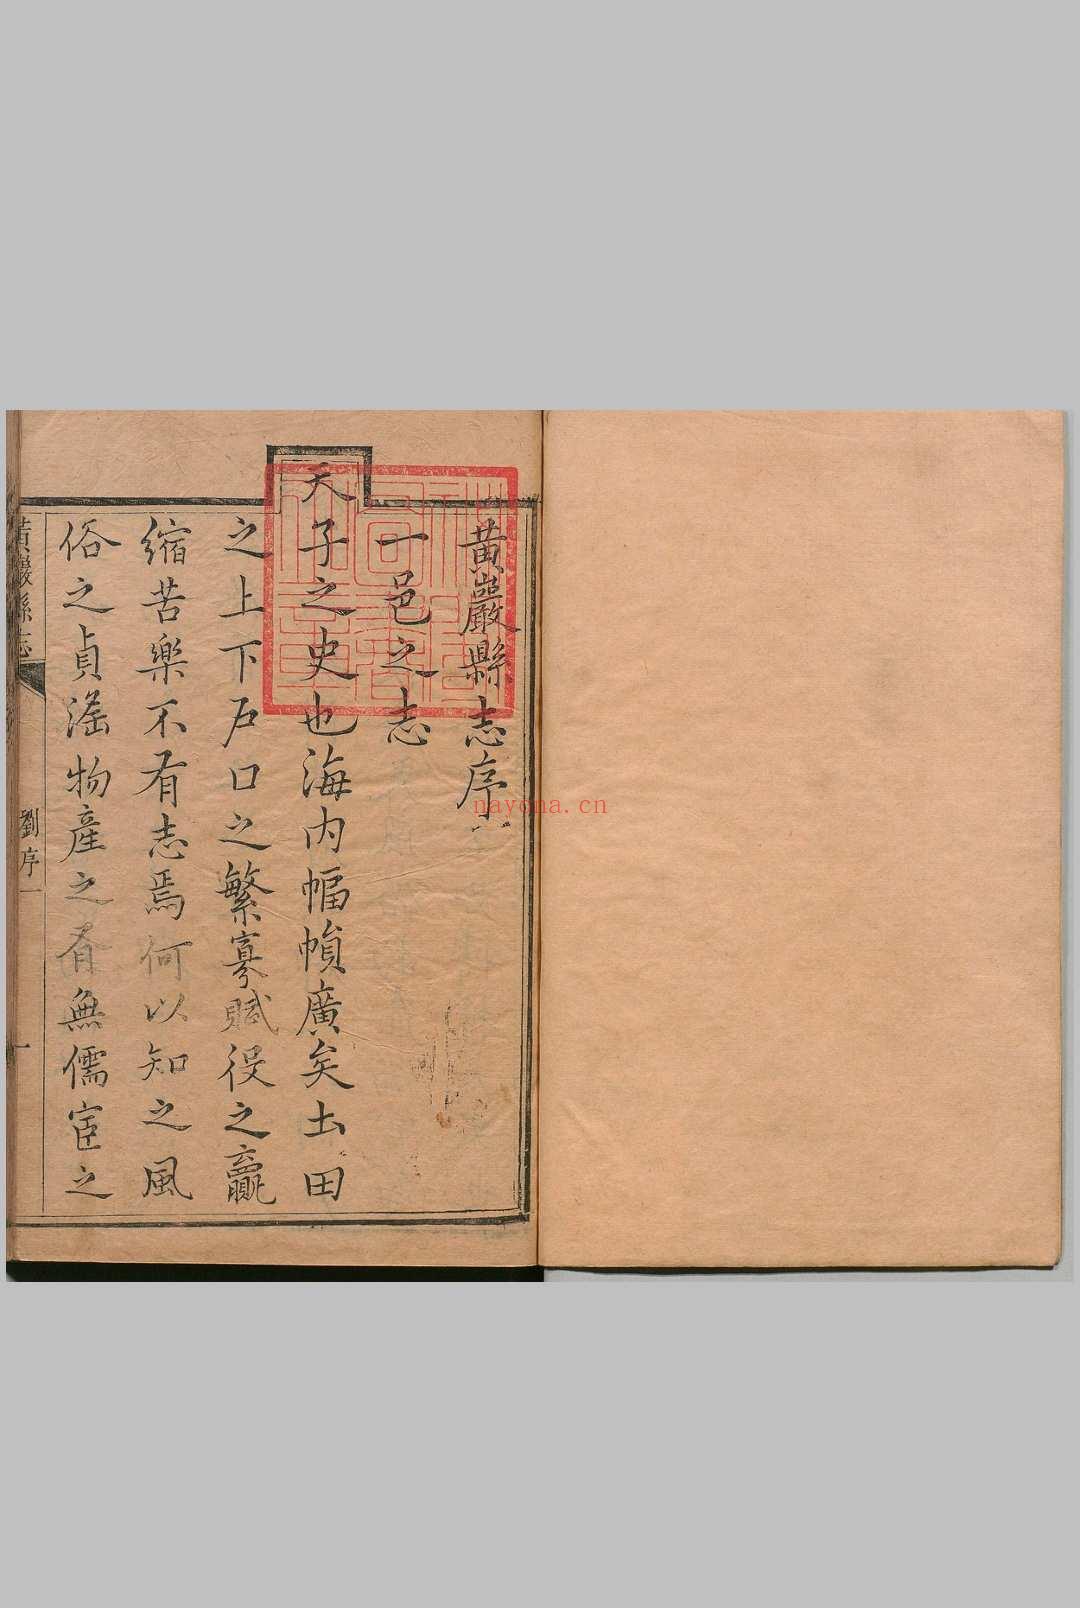 黃巖縣志序
一邑之志
天子之史也海内幅幀廣矣土田
之上下戶口之繁寡賦役之贏
縮苦樂不有志焉何以知之風
俗之貞滛物產之有無儒宦之
黃巖縣志
劉序一
一
nayona.cn